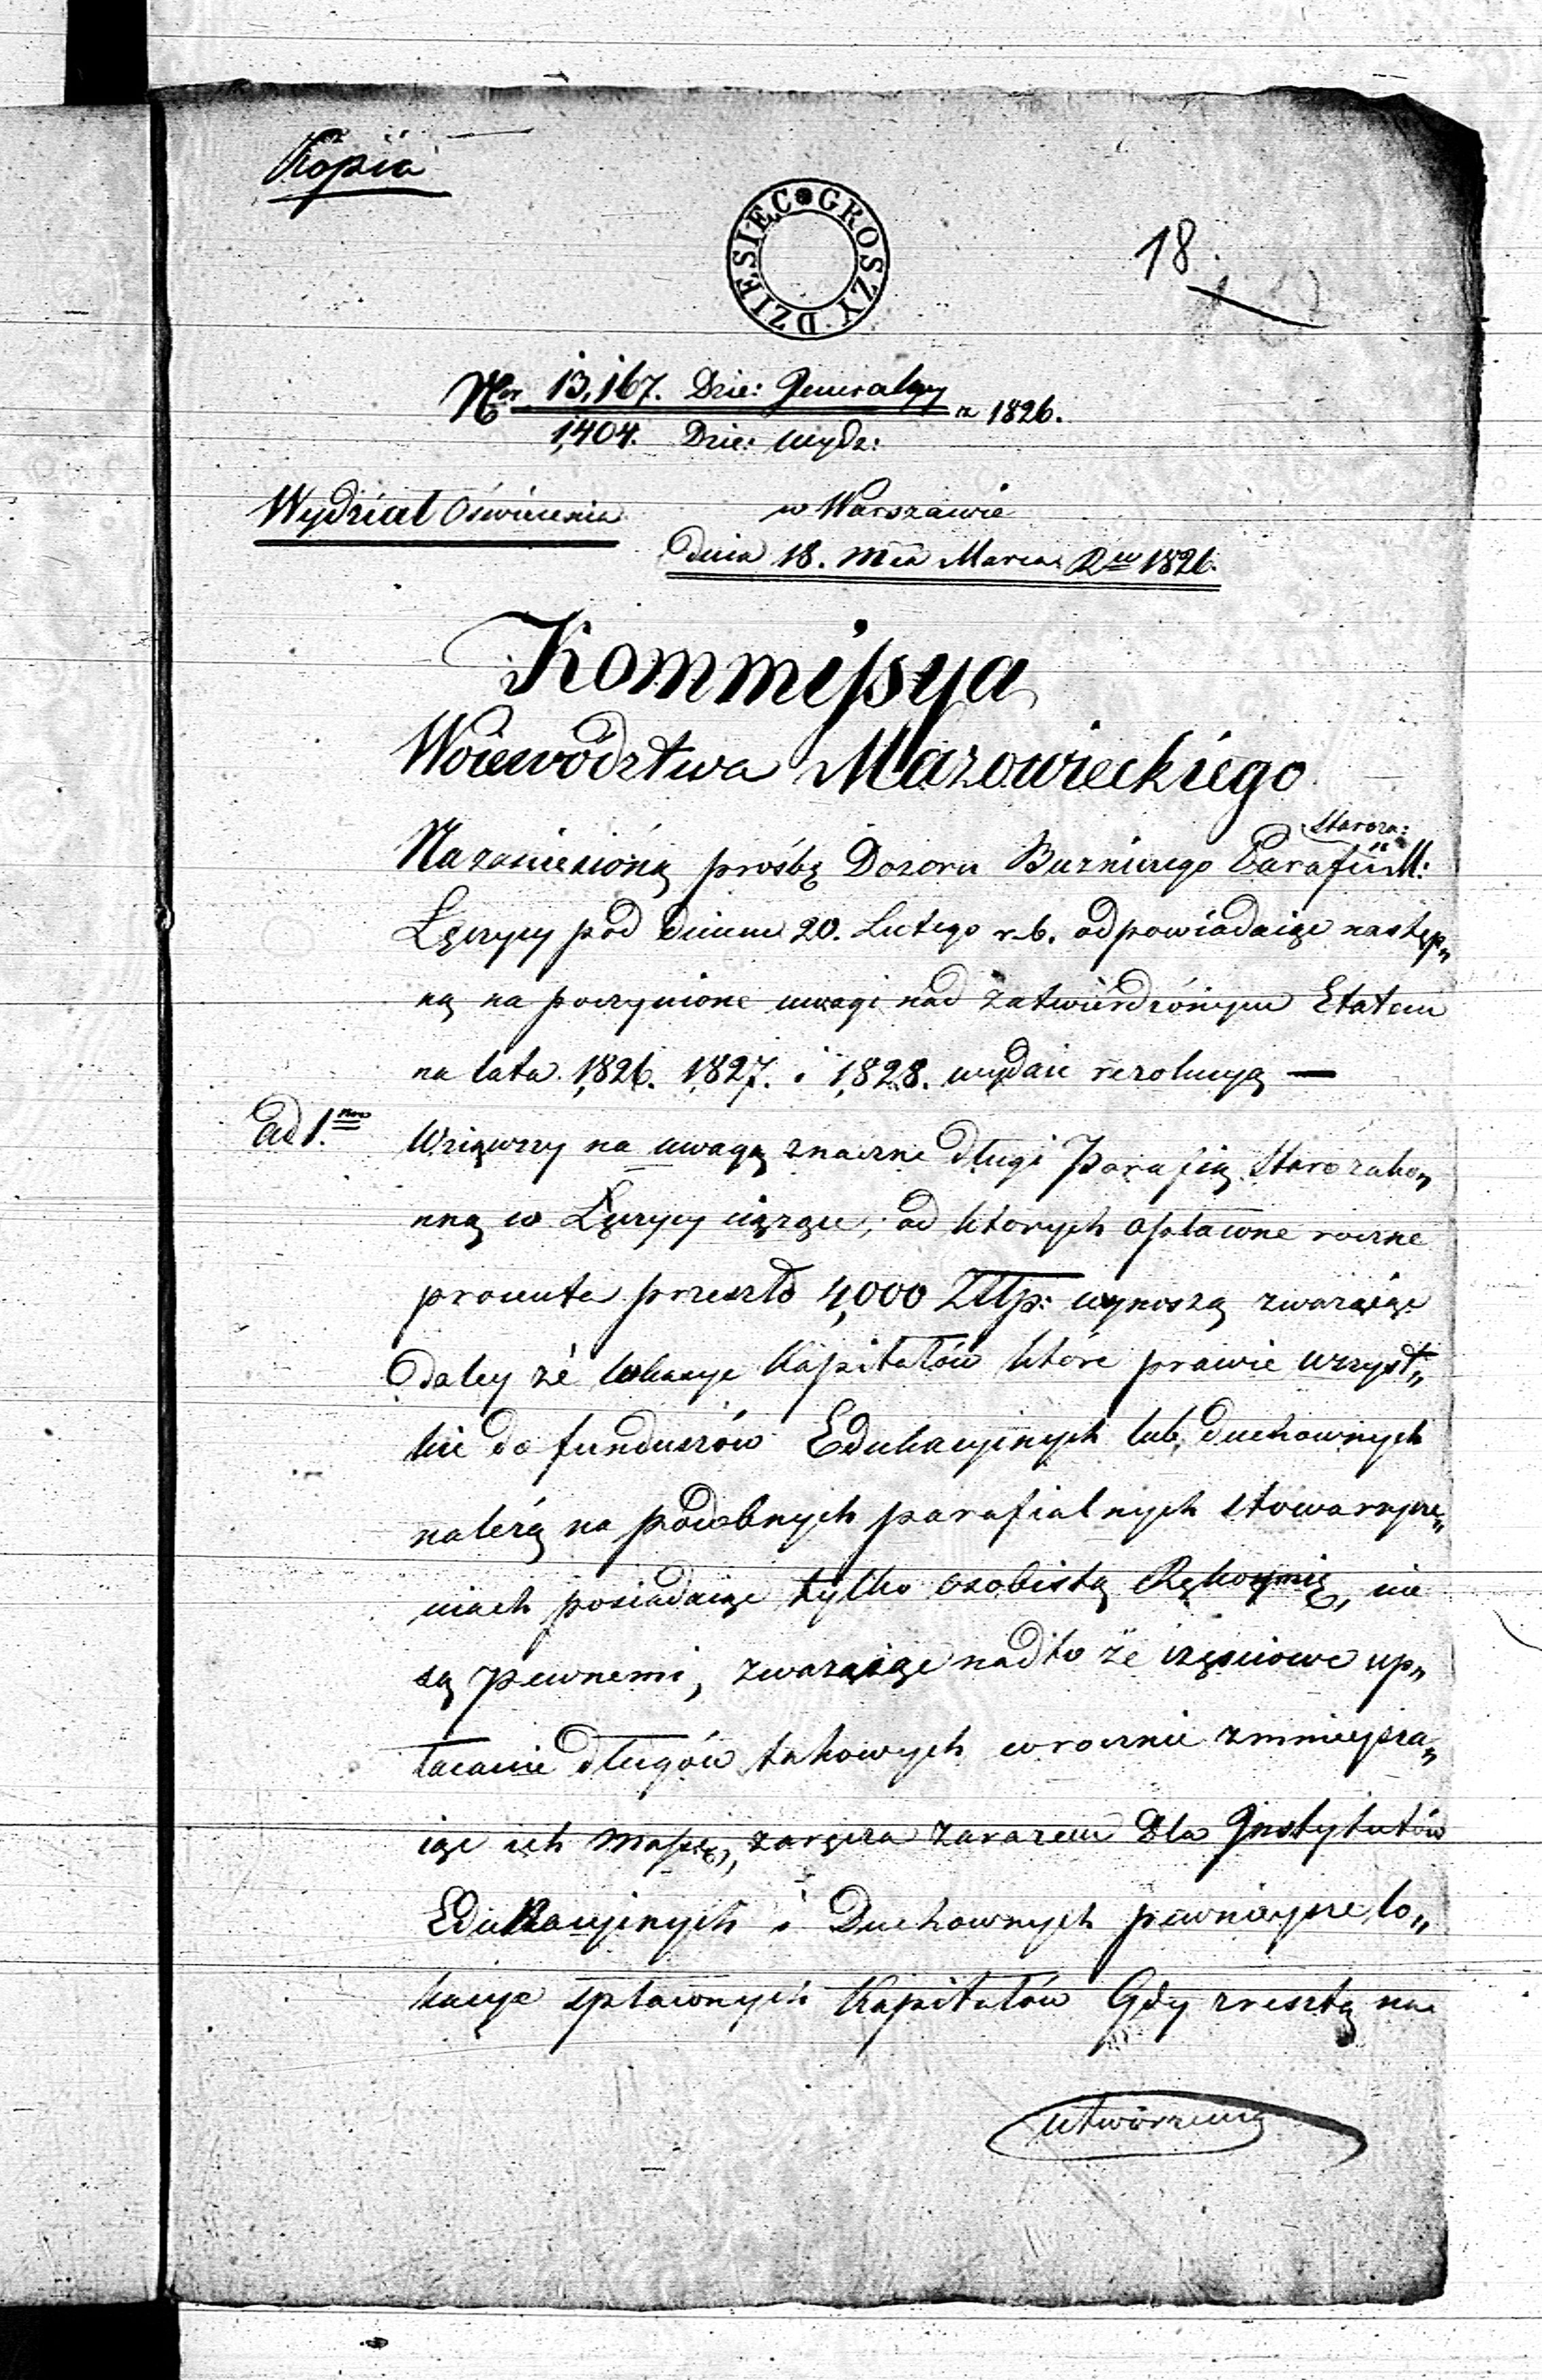 Kopia
DZIESIĘC GROSZY
18
Nor 13,167. Dzie: Generalny z 1826.
1,404. Dzie: Wydz:
Wydział Oświecenia
w Warszawie
dnia 18. Mca Marca Ru 1826.
Kommissya
Woiewództwa Mazowieckiego
Staroza:
Na zaniesioną prośbę Dozoru Buzniczego Parafii M:
Łęczycy pod dniem 20. Lutego r. b. odpowiadaiąc następ„
ną na poczynione uwagi nad zatwierdzónym Etatem
na lata 1,826. 1,827. i 1,828. wydaie rezolucyą —
Ad 1.mo
Wziąwszy na uwagę znaczne długi Parafią Starozako„
nną w Łęczycy ciążące, od których opłatne roczne
procenta przeszło 4,000 Złtp: wynoszą zważaiąc
daley że lokacye Kapitałów które prawie wszyst„
kie do funduszów Edukacyinych lub duchownych
należą na podobnych parafialnych stowarzysze„
niach posiadaiąc tylko osobistą Rękoymię, nie
są pewnemi, zważaiąc nadto że częściowe up„
łacanie długów takowych corocznie zmnieysza„
iąc ich massę, zaręcza zarazem dla Instytutów
Edukacyinych i Duchownych pewnieysze lo„
kacye spłatnych Kapitałów Gdy zresztą na
utworzenie